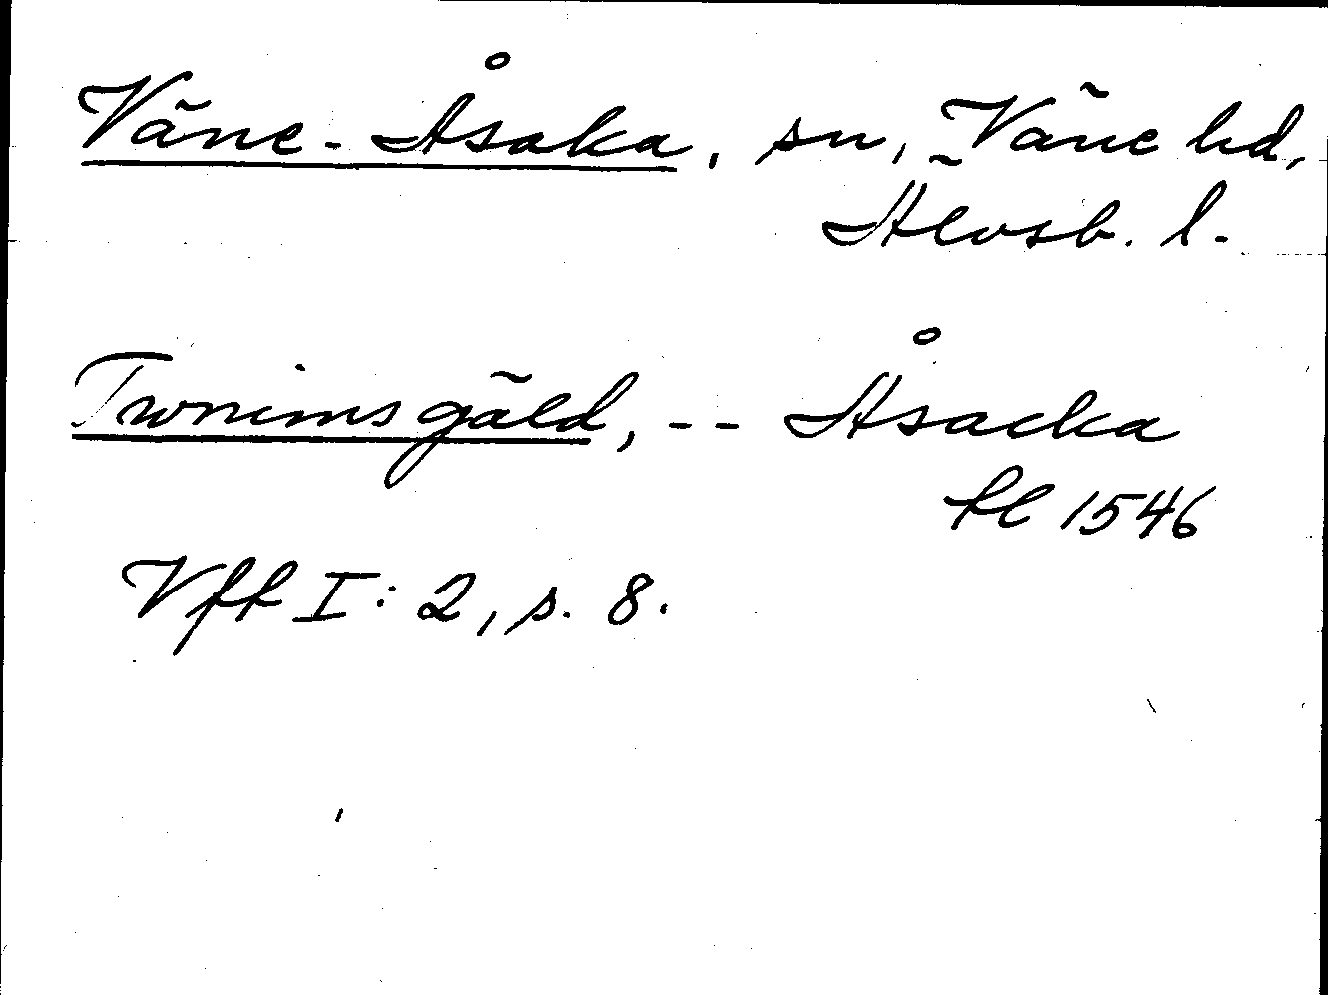 Väne-Åsaka, sn, Väne hd,
Älvsb. l.
Twnimsgäld, -- Åsacka
fl 1546
Vff I: 2, s. 8.